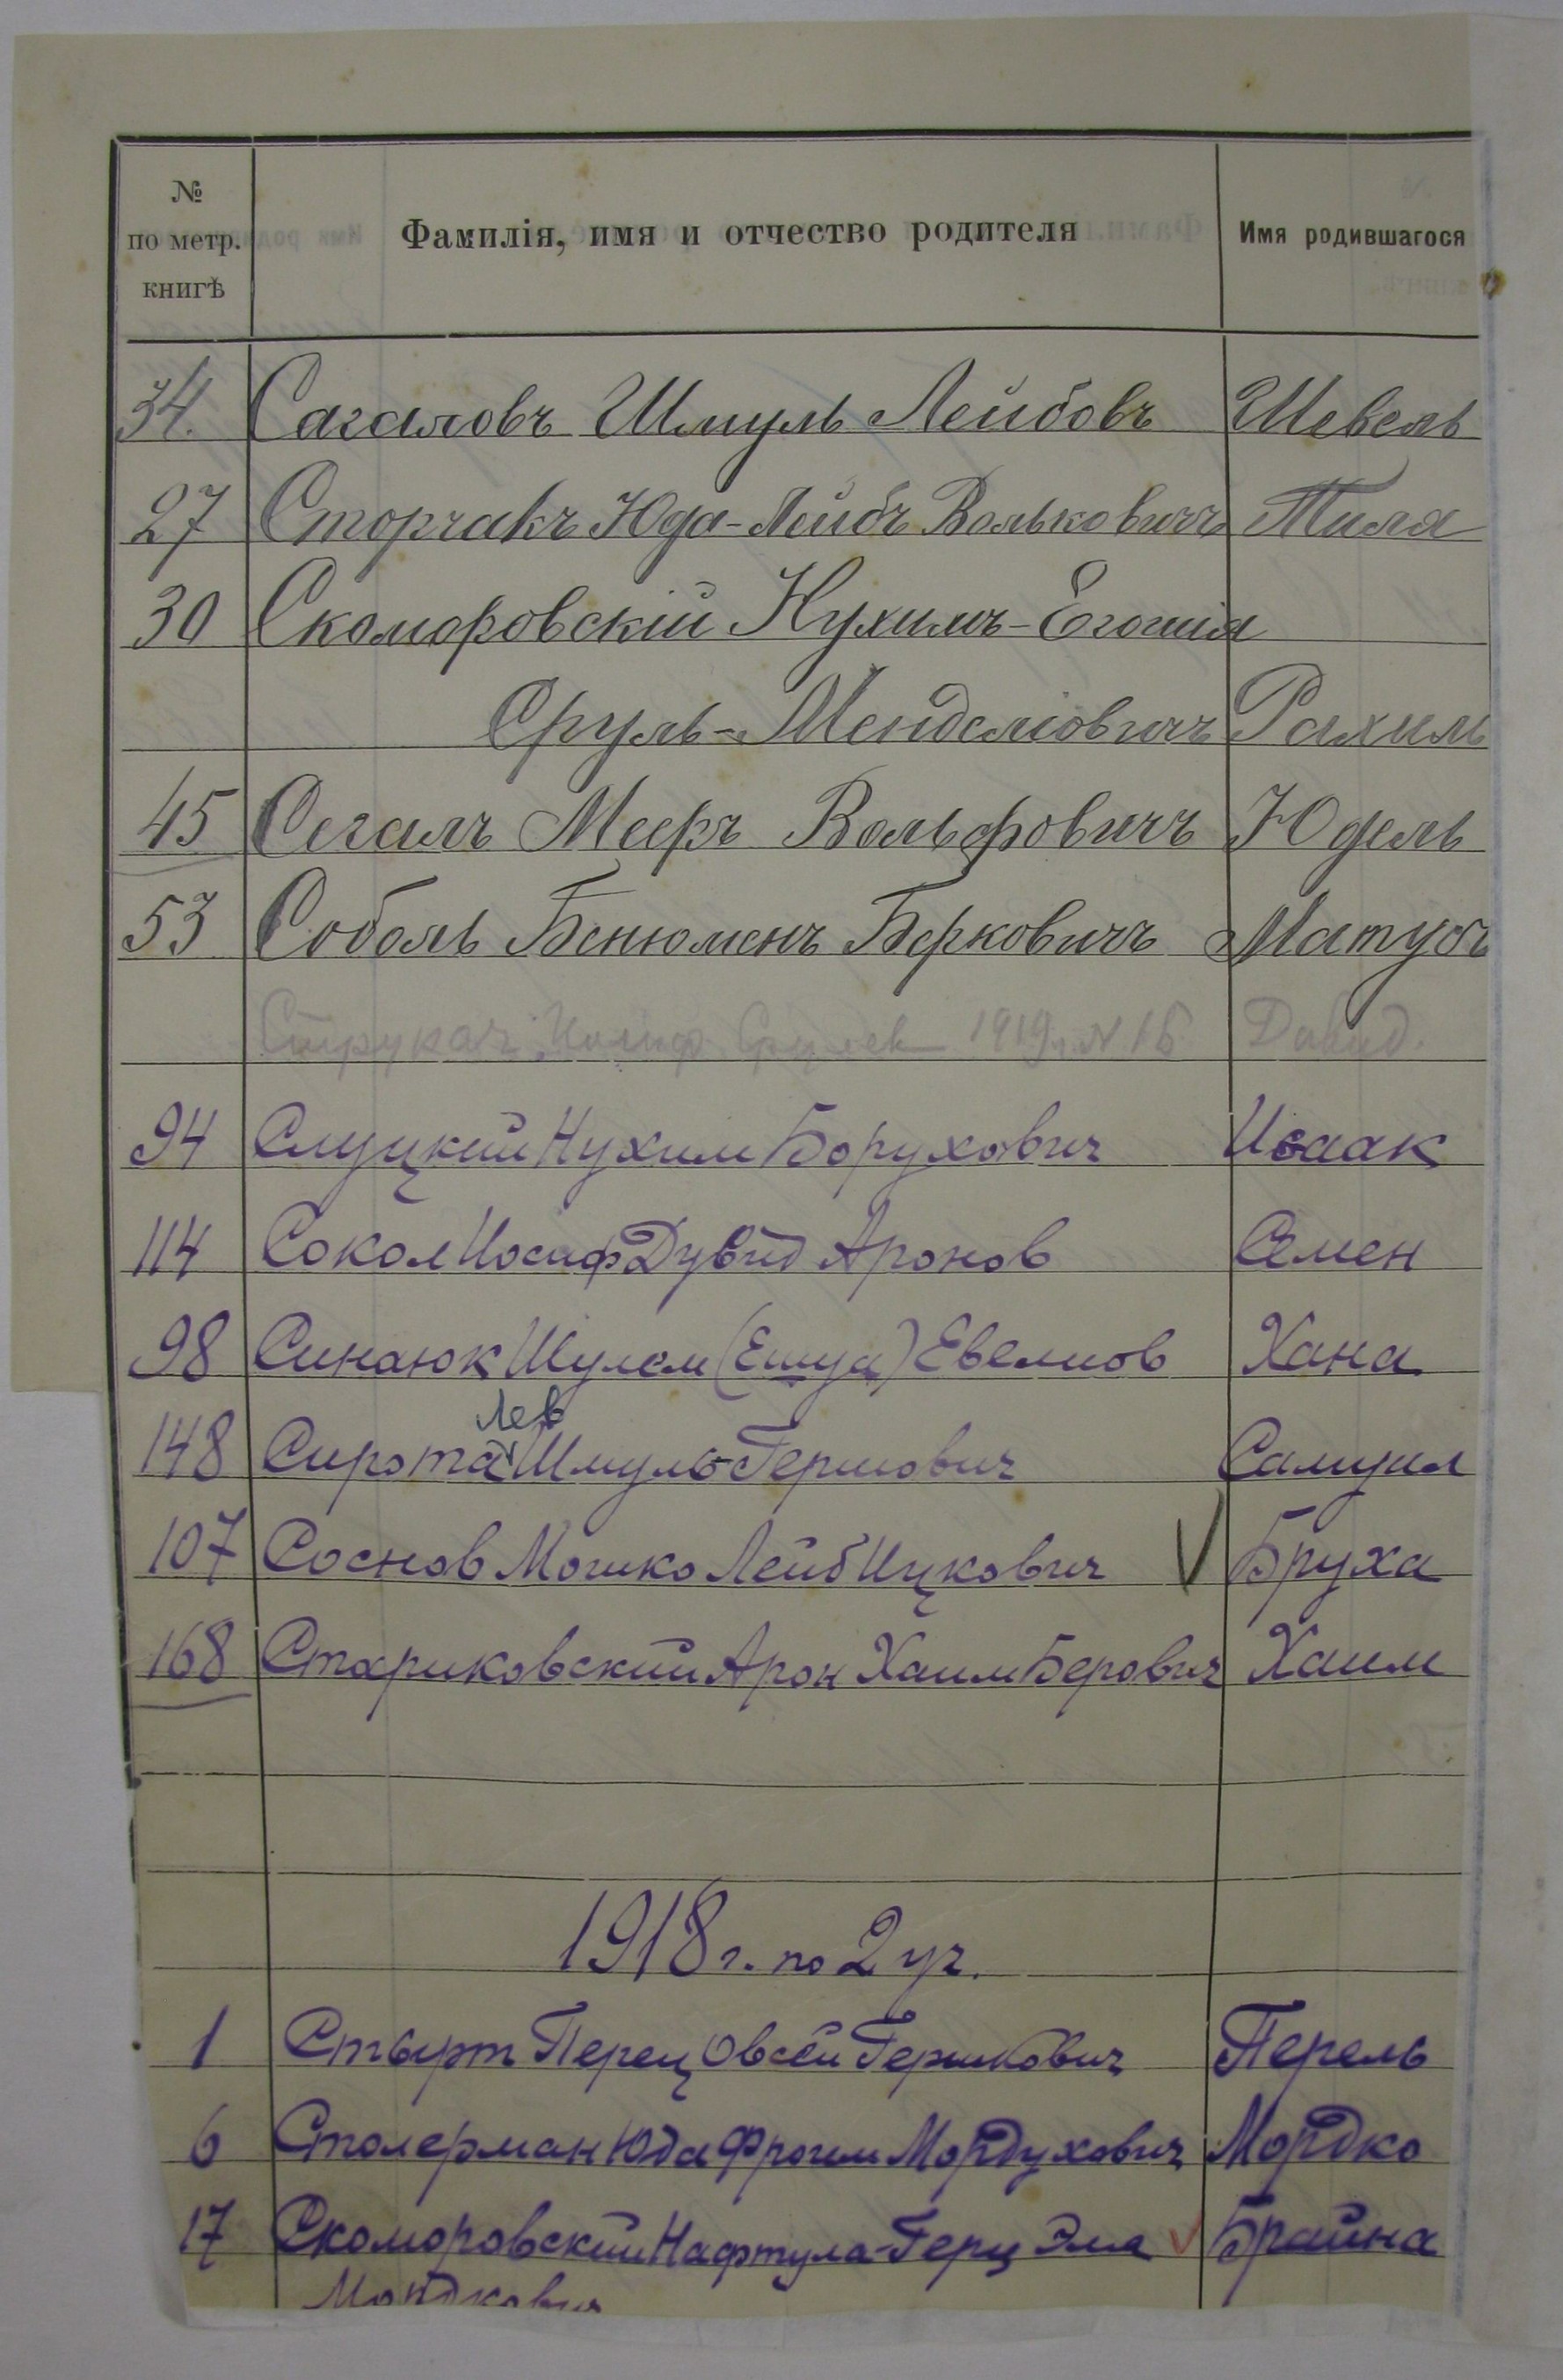 № по метр. книгѣ Фамилія, имя и отчество родителя Имя родившагося
34. Сагаловъ Шмуль Лейбовъ Шевель
27 Сторчакъ Юда-Лейбъ Вольковичъ Тиля
30 Скоморовскій Нухимъ-Егошія
Сруль-Менделіовичъ Рахиль
45 Сегалъ Мееръ Вольфовичъ Юдель
53 Соболь Бенюменъ Берковичъ Матусъ
Струкач Иосиф Срулев 1919 г. № 15 Давид.
94 Слуцкий Нухим Борухович Исаак
114 Сокол Иосиф Дувид Аронов Семен
98 Синаюк Шулем (Ешуа) Евелиов Хана
Лев
148 Сирота Шмуль-Гершович Самуил
107 Соснов Мошко Лейб Ицкович V Бруха
168 Стариковский Арон Хаим Берович Хаим
1918 г. по 2 уч.
1 Стырт Перец Овсей Гершкович Перель
6 Столерман Юда Фроим Мордухович Мордко
17 Скоморовский Нафтула-Герц Эля V Брайна
Мордкович